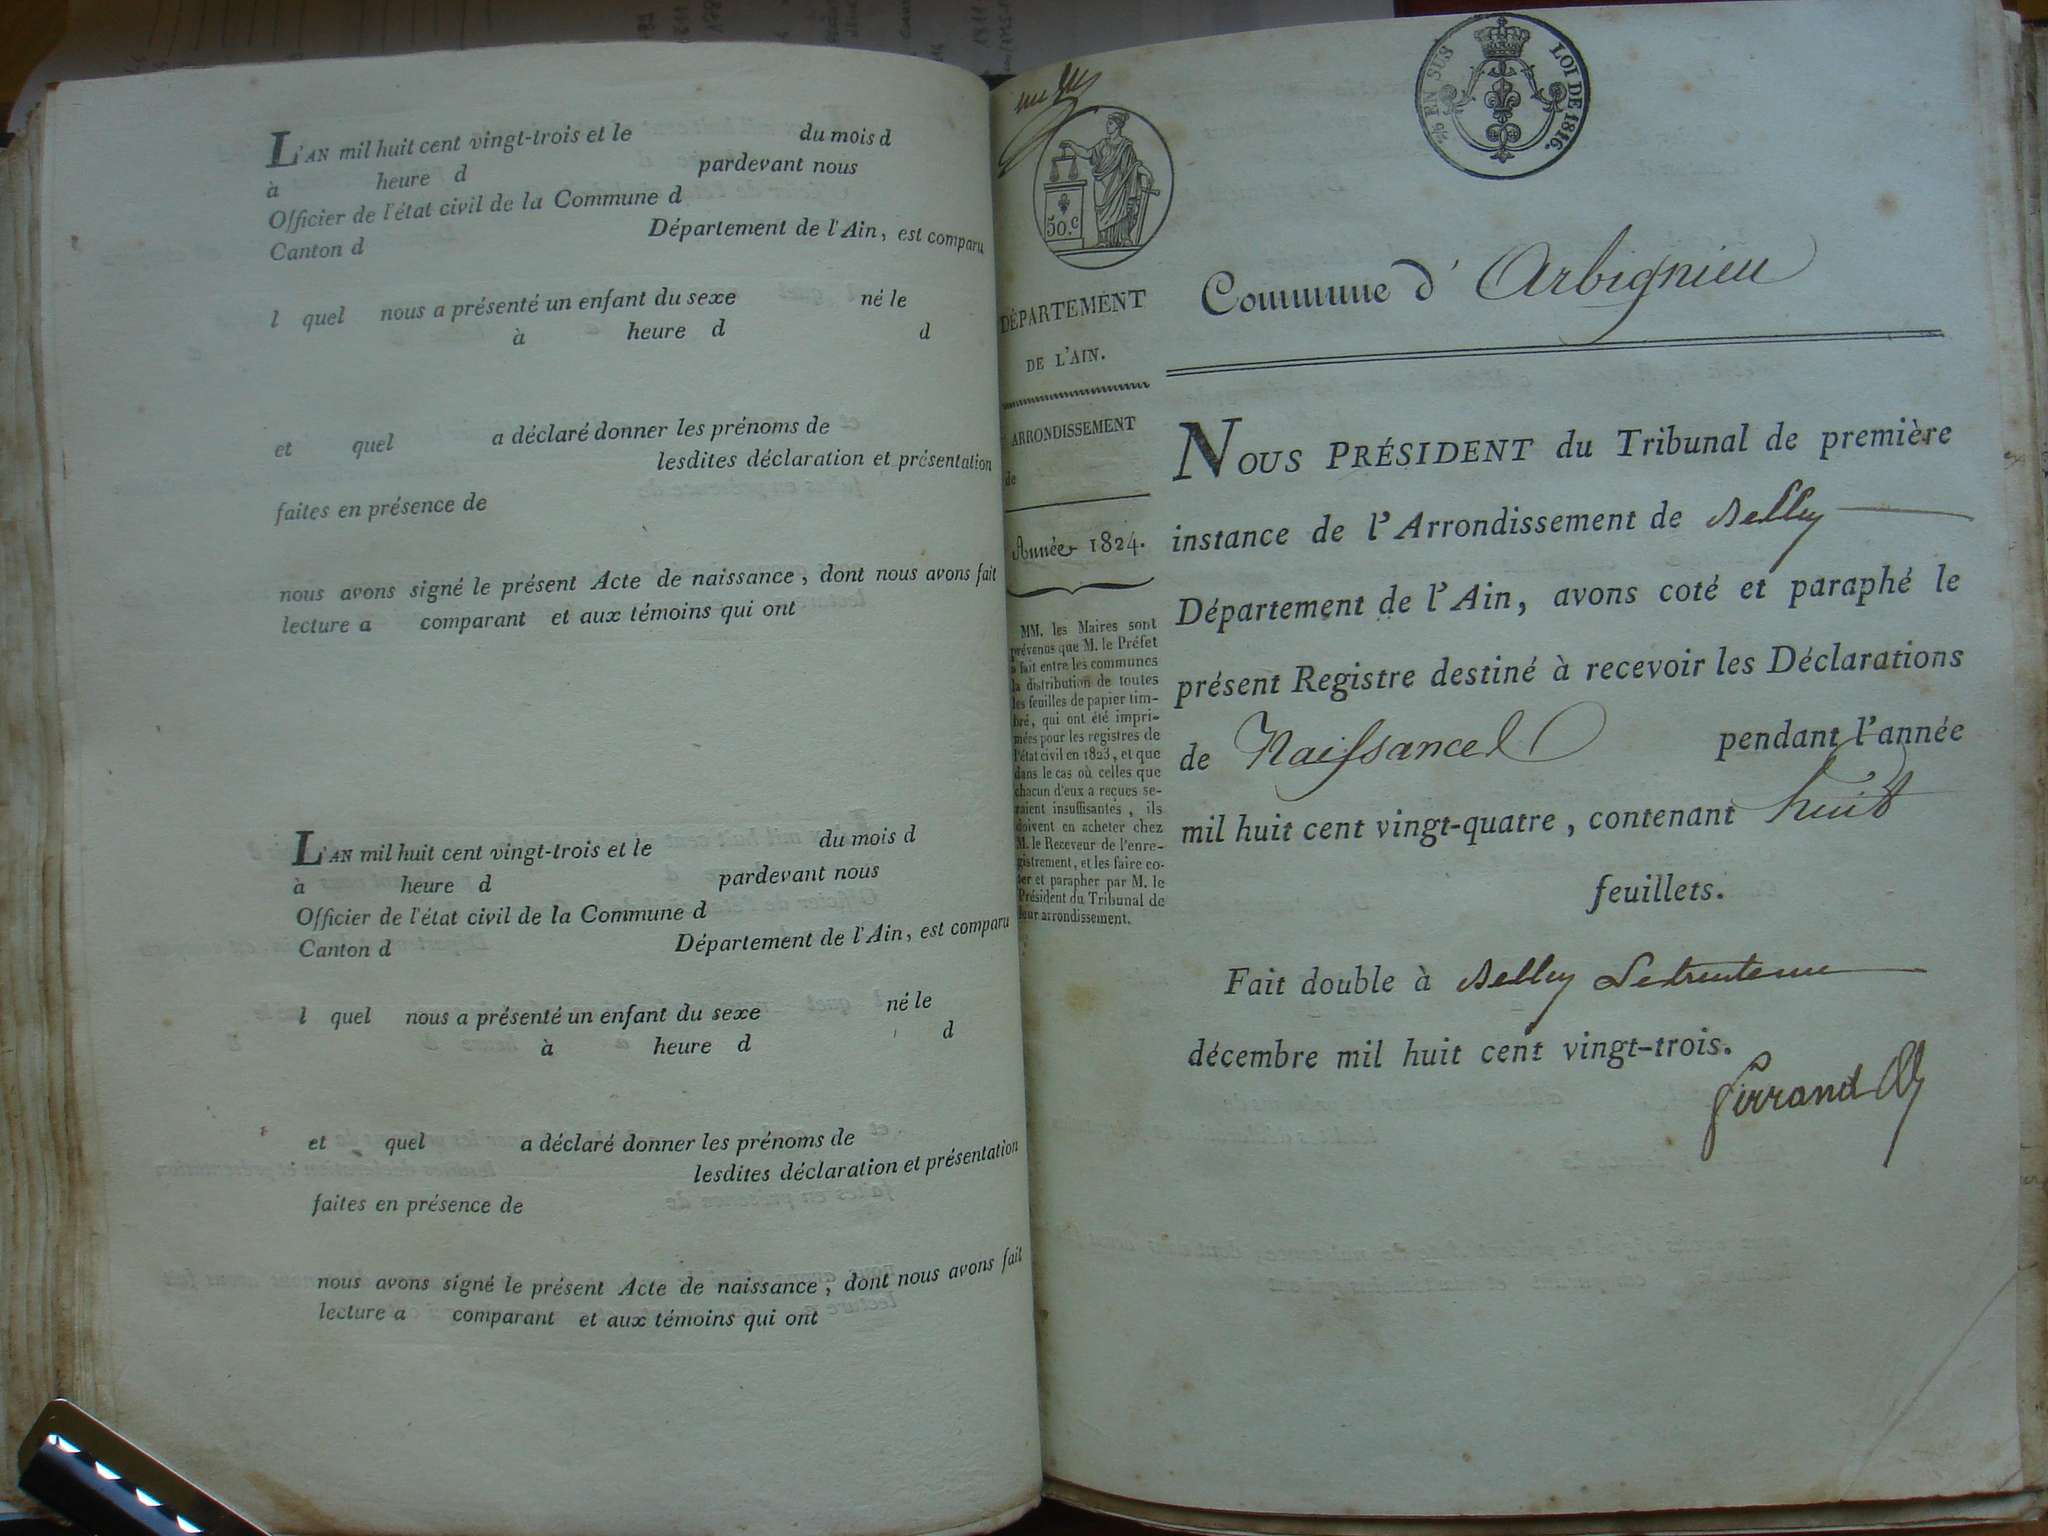 L'AN mil huit cent vingt-trois et le du mois d
à heure d pardevant nous
Officier de l'état civil de la Commune d
Canton d Département de l'Ain, est comparu
l quel nous a présenté un enfant du sexe né le
à heure d d
et quel a déclaré donner les prénoms de
lesdites déclaration et présentation
faites en présence de
nous avons signé le présent Acte de naissance, dont nous avons fait
lecture a comparant et aux témoins qui ont
L'AN mil huit cent vingt-trois et le du mois d
à heure d pardevant nous
Officier de l'état civil de la Commune d
Canton d Département de l'Ain, est comparu
l quel nous a présenté un enfant du sexe né le
à heure d d
et quel a déclaré donner les prénoms de
lesdites déclaration et présentation
faites en présence de
nous avons signé le présent Acte de naissance, dont nous avons fait
lecture a comparant et aux témoins qui ont
50.c
EN SUS LOI DE 1816.
DÉPARTEMENT
DE L'AIN.
ARRONDISSEMENT
de
Année 1824.
MM. les Maires sont
prévenus que M. le Préfet
a fait entre les communes
la distribution de toutes
les feuilles de papier tim-
bré, qui ont été impri-
mées pour les registres de
l'état civil en 1823, et que
dans le cas où celles que
chacun d'eux a reçues se-
raient insuffisantes, ils
doivent en acheter chez
M. le Receveur de l'enre-
gistrement, et les faire co-
ter et parapher par M. le
Président du Tribunal de
leur arrondissement.
Commune d'Arbignieu
NOUS PRÉSIDENT du Tribunal de première
instance de l'Arrondissement de Belley
Département de l'Ain, avons coté et paraphé le
présent Registre destiné à recevoir les Déclarations
de Naissances pendant l'année
mil huit cent vingt-quatre, contenant huit
feuillets.
Fait double à Belley le trente un
décembre mil huit cent vingt-trois.